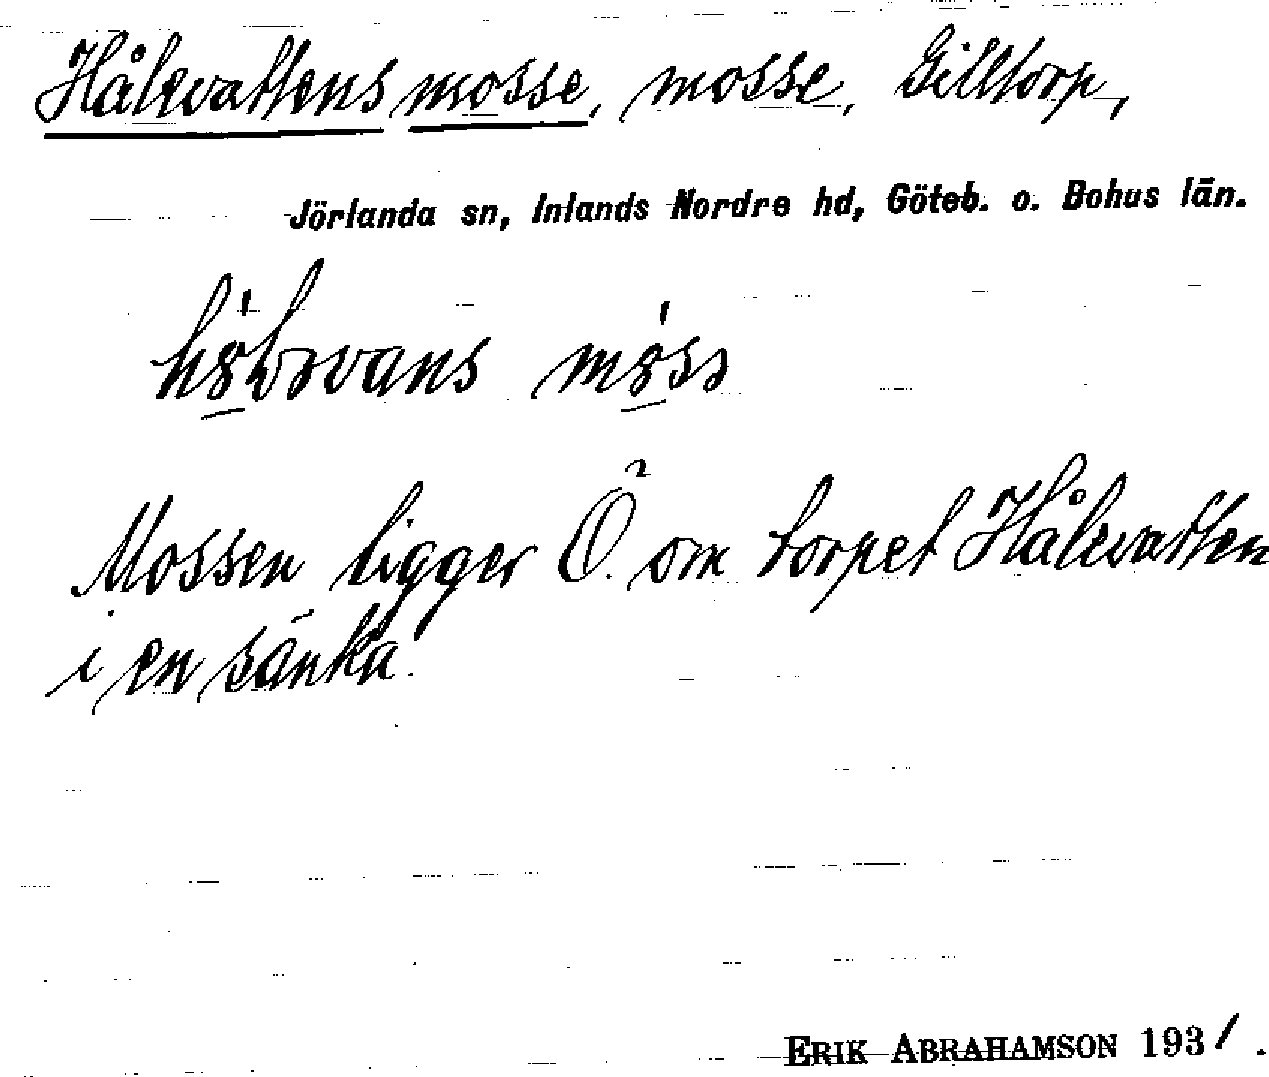 Hålevattens mosse, mosse, Gilltorp,
Jörlanda sn, Inlands Nordre hd, Göteb. o. Bohus län.
Mossen ligger Ö. om torpet Hålevatten
i en sänka.
ERIK ABRAHAMSON 1931.